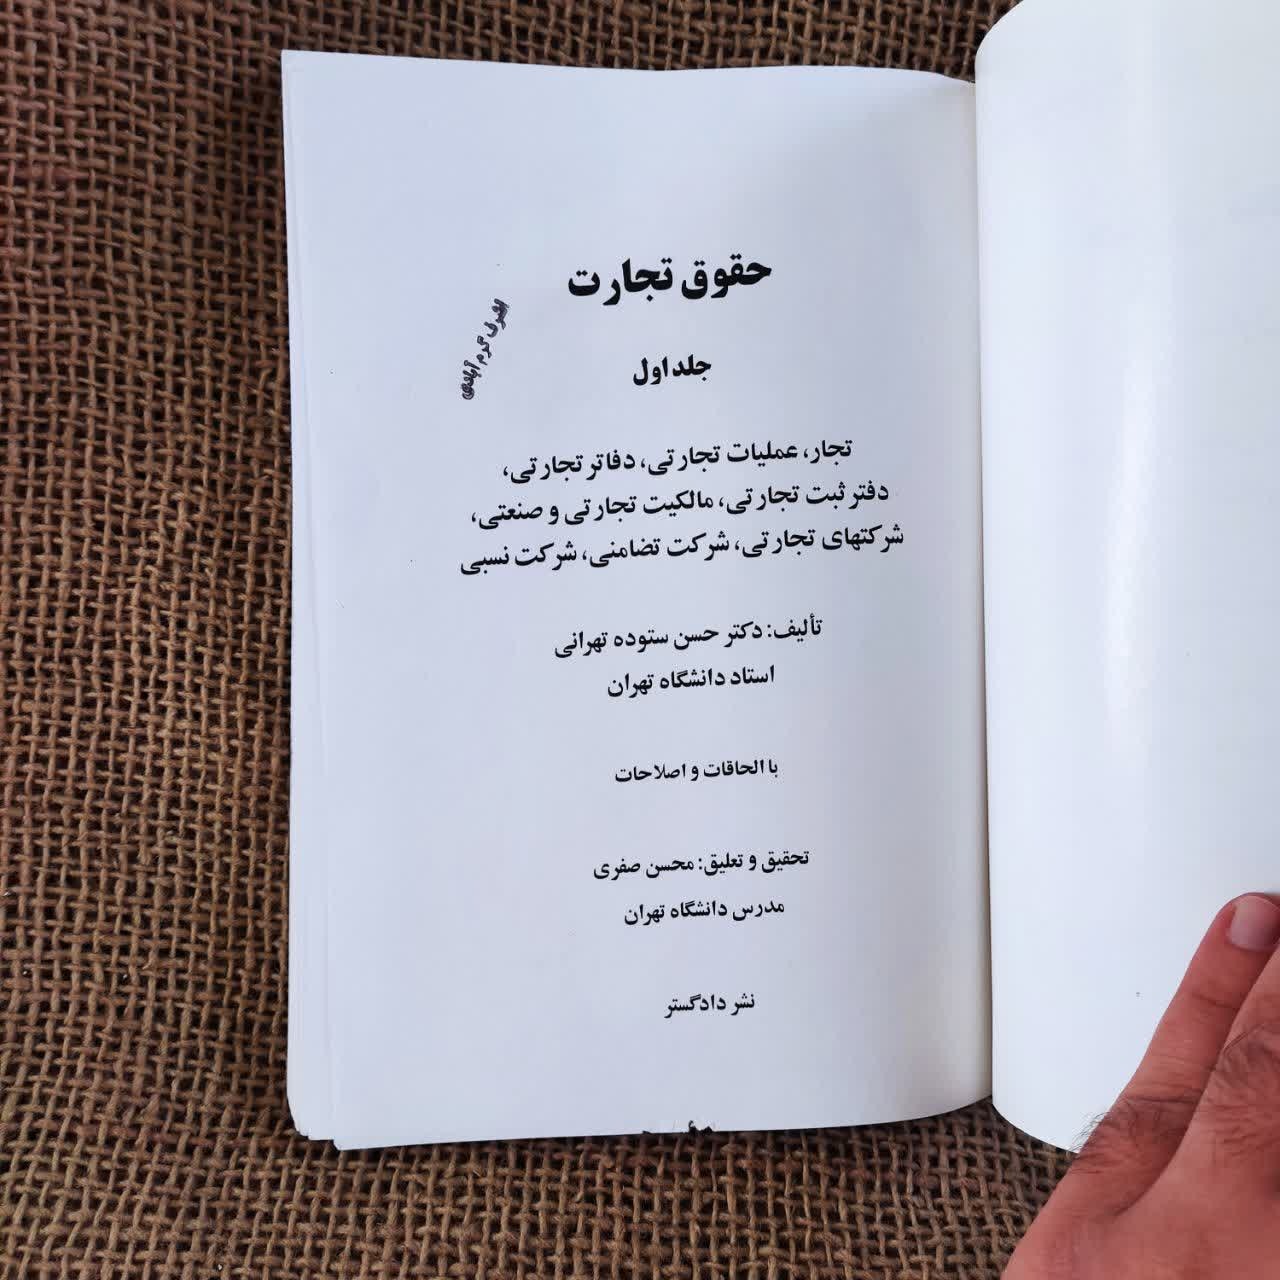 حقوق تجارت
جلد اول
اشرف گرم آبادی
تجار، عملیات تجارتی، دفاتر تجارتی،
دفتر ثبت تجارتی، مالکیت تجارتی و صنعتی،
شرکتهای تجارتی، شرکت تضامنی، شرکت نسبی
تألیف: دکتر حسن ستوده تهرانی
استاد دانشگاه تهران
با الحاقات و اصلاحات
تحقیق و تعلیق: محسن صفری
مدرس دانشگاه تهران
نشر دادگستر